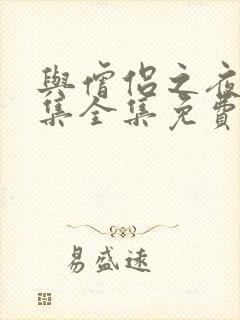 與僧侶之夜
集全集免費
易盛遠